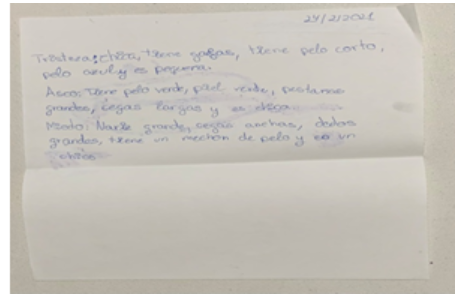 24/2/2021
Tristeza: chica, tiene gafas, tiene pelo corto,
pelo azul y es pequeña.
Asco: Tiene pelo verde, piel verde, pestañas
grandes, cegas largas y es chica.
Miedo: Nariz grande, cegas anchas, dedos
grandes, tiene un mechon de pelo y es un
chico.